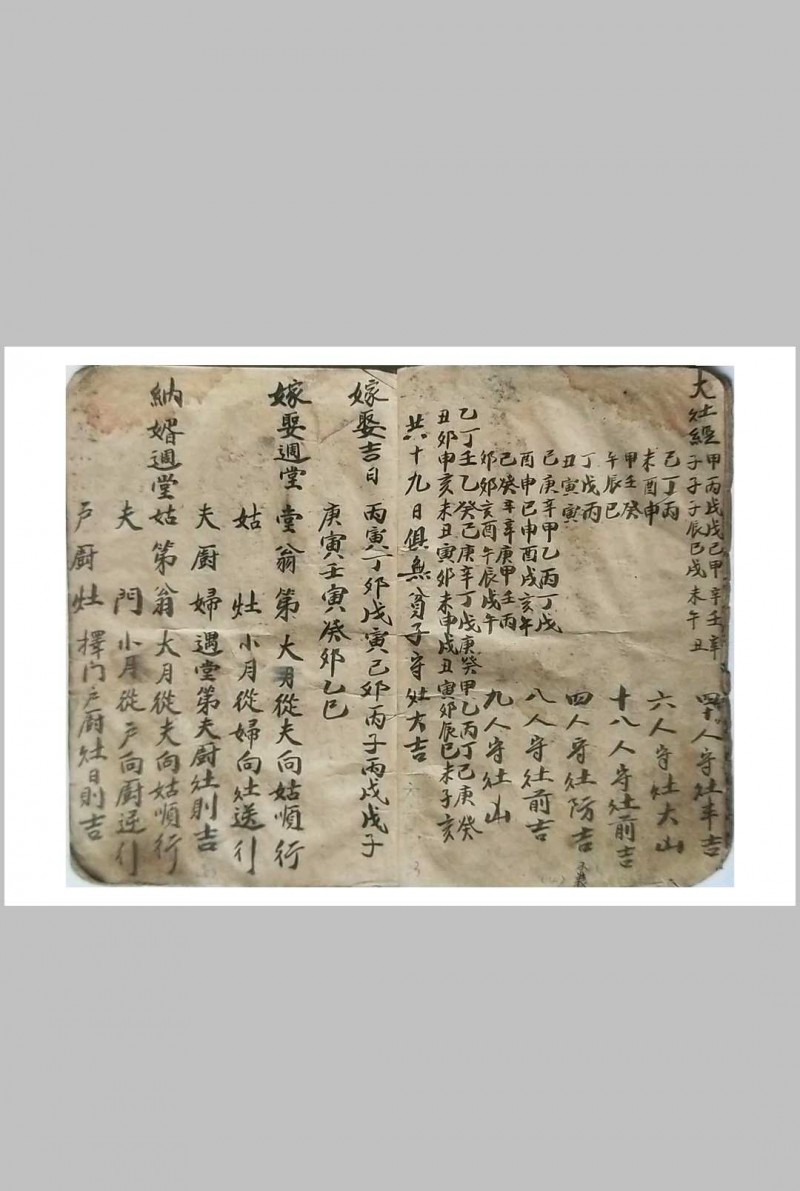 大灶經 甲丙戊戊己甲辛壬辛
子子子辰巳戌未午丑
人守灶丰吉
己丁丙
未酉申
六人守灶大山
甲壬癸
午辰巳
十八人守灶前吉
丁戊丙
丑寅寅
四人守灶防吉
己庚辛甲乙丙丁戊
酉申巳申酉戌亥午
八人守灶前吉
己癸辛辛庚甲壬丙
卯卯亥酉午辰戌午
九人守灶山
乙丁壬乙癸己庚辛丁戊庚癸甲乙丙丁己庚癸
丑卯申亥未丑寅卯未申戌丑寅卯辰巳未子亥
共十九日俱無子守灶大吉
嫁娶吉日 丙寅丁卯戊寅己卯丙子丙戌戊子
庚寅壬寅癸卯乙巳
嫁娶週堂 堂翁第 大月從夫向姑順行
姑 灶 小月從婦向灶送行
夫厨婦 遇堂第夫厨灶則吉
納婿週堂 姑第翁 大月從夫向姑順行
夫 門 小月從戶向厨逆行
戶厨灶 擇门戶厨灶日則吉